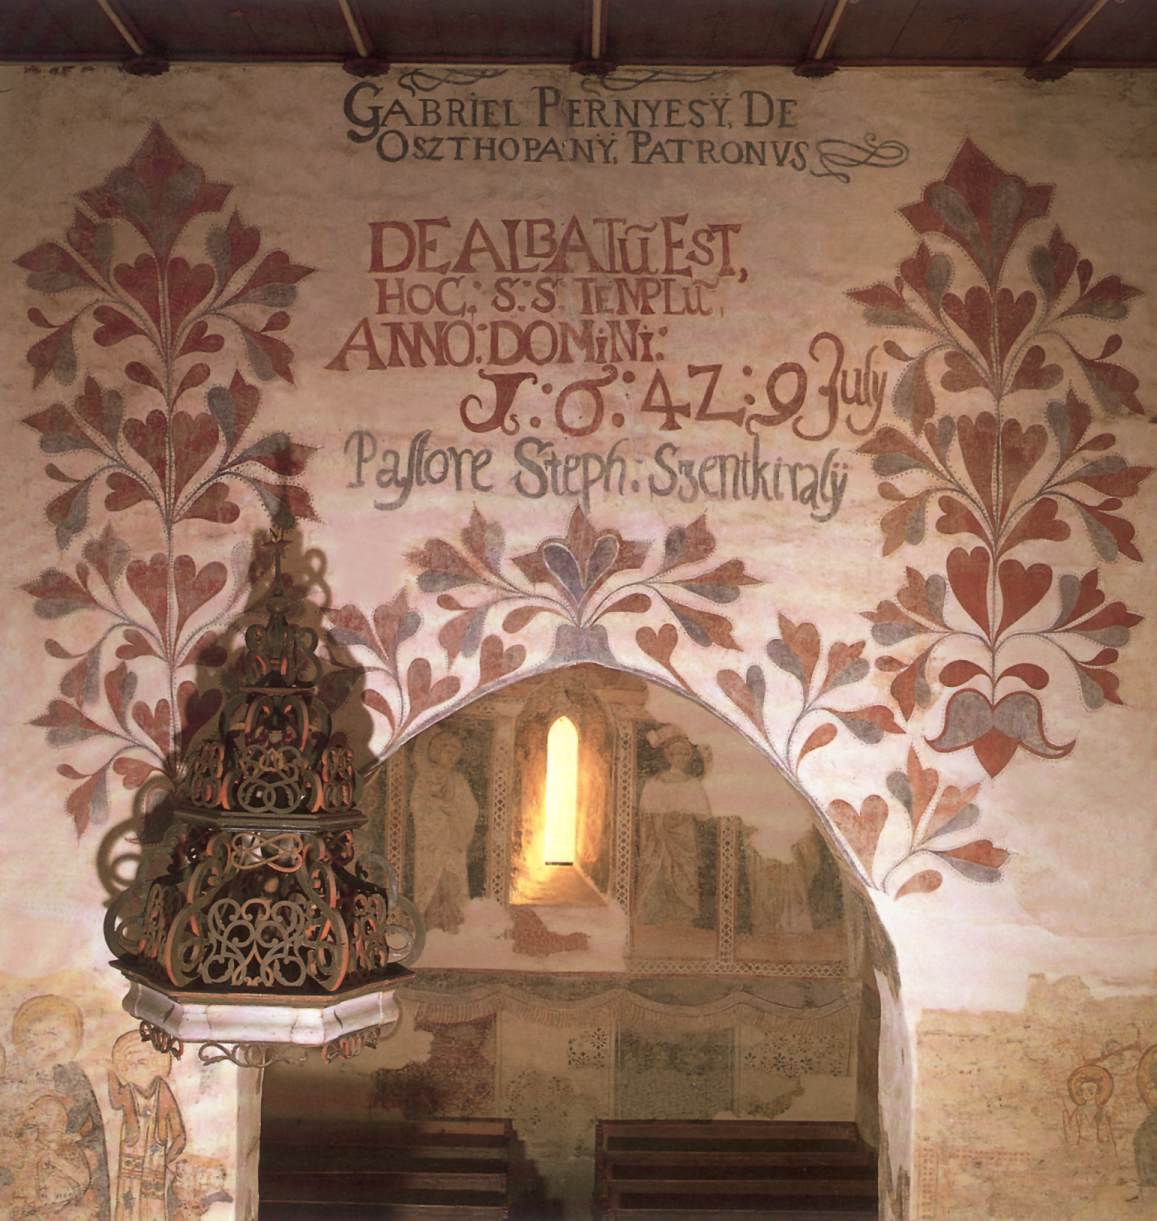 GABRİEL PERNYESŸ, DE
OSZTHOPÁNŸ, PATRONVS
DEALBATŨ EST,
HOC, S: S: TENPLŨ,
ANNO: DOMİNİ:
J: 6: 4Z: 9 July
Pastore Steph: Szentkiralÿ